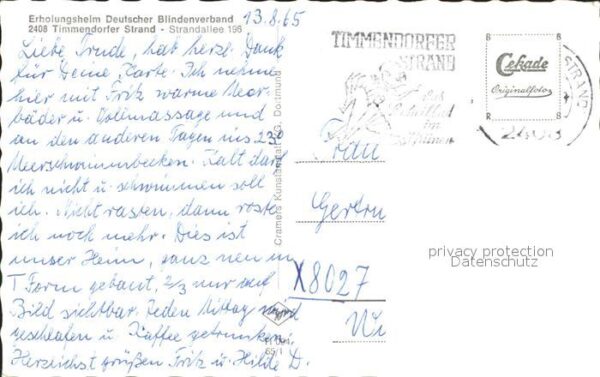 Erholungsheim Deutscher Blindenverband
2408 Timmendorfer Strand - Strandallee 196
13.8.65
Liebe Trude, hab herzl. Dank
für Deine Karte. Ich nehme
hier mit Fritz warme Meer-
bäder u. Vollmassage und
an den anderen Tagen ins 23°
Meerschwimmbecken. Kalt darf
ich nicht u. schwimmen soll
ich. Nicht rasten, dann roste
ich noch mehr. Dies ist
unser Heim, ganz neu in
T Form gebaut, 2/3 nur auf
Bild sichtbar. Jeden Mittag wird
geschlafen u. Kaffee getrunken.
Herzlichst grüßen Fritz u. Hilde D.
Cramers Kunstanstalt KG, Dortmund
TIMMENDORFER
STRAND
Das
im
Cekade
Originalfotos
STRAND
2408
Frau
Gertru
X8027
privacy protection
Datenschutz